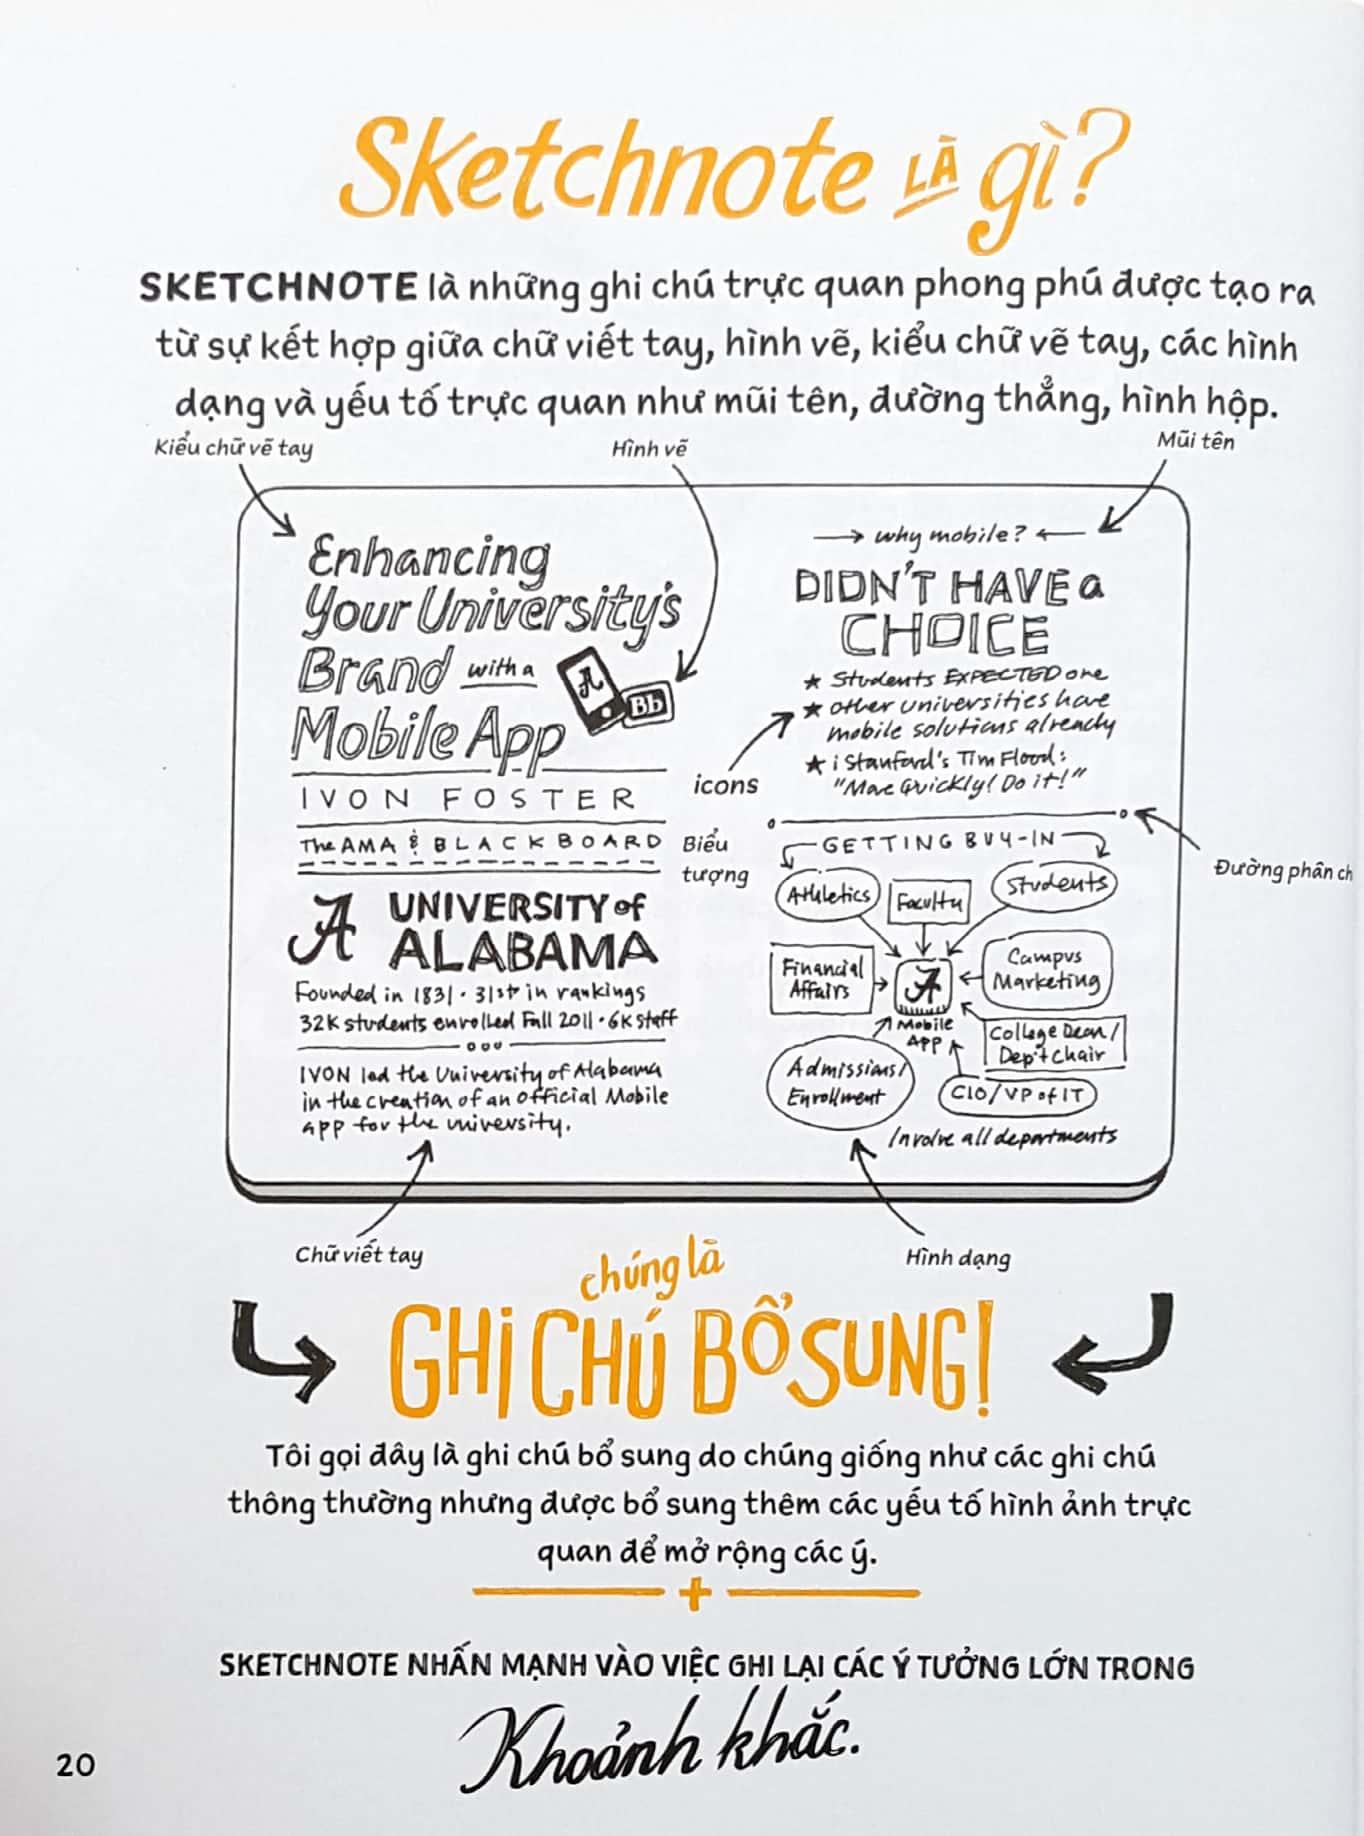 Sketchnote LÀ gì?
SKETCHNOTE là những ghi chú trực quan phong phú được tạo ra
từ sự kết hợp giữa chữ viết tay, hình vẽ, kiểu chữ vẽ tay, các hình
dạng và yếu tố trực quan như mũi tên, đường thẳng, hình hộp.
Kiểu chữ vẽ tay
Hình vẽ
Mũi tên
Enhancing
Your University's
Brand with a
Mobile App
A
Bb
IVON FOSTER
The AMA & BLACKBOARD
A UNIVERSITY of
ALABAMA
Founded in 1831 · 31st in rankings
32K students enrolled Fall 2011 · 6K staff
IVON led the University of Alabama
in the creation of an official Mobile
app for the university.
icons
Biểu
tượng
why mobile?
DIDN'T HAVE a
CHOICE
★ Students EXPECTED one
★ other universities have
mobile solutions already
★ i Stanford's Tim Flood:
"Move Quickly! Do it!"
Đường phân ch
GETTING BUY-IN
Athletics
Faculty
Students
Financial
Affairs
A
Mobile
App
Campus
Marketing
College Dean/
Dep't Chair
Admissions/
Enrollment
CIO/VP of IT
Involve all departments
Chữ viết tay
Hình dạng
chúng là
GHI CHÚ BỔ SUNG!
Tôi gọi đây là ghi chú bổ sung do chúng giống như các ghi chú
thông thường nhưng được bổ sung thêm các yếu tố hình ảnh trực
quan để mở rộng các ý.
+
SKETCHNOTE NHẤN MẠNH VÀO VIỆC GHI LẠI CÁC Ý TƯỞNG LỚN TRONG
Khoảnh khắc.
20